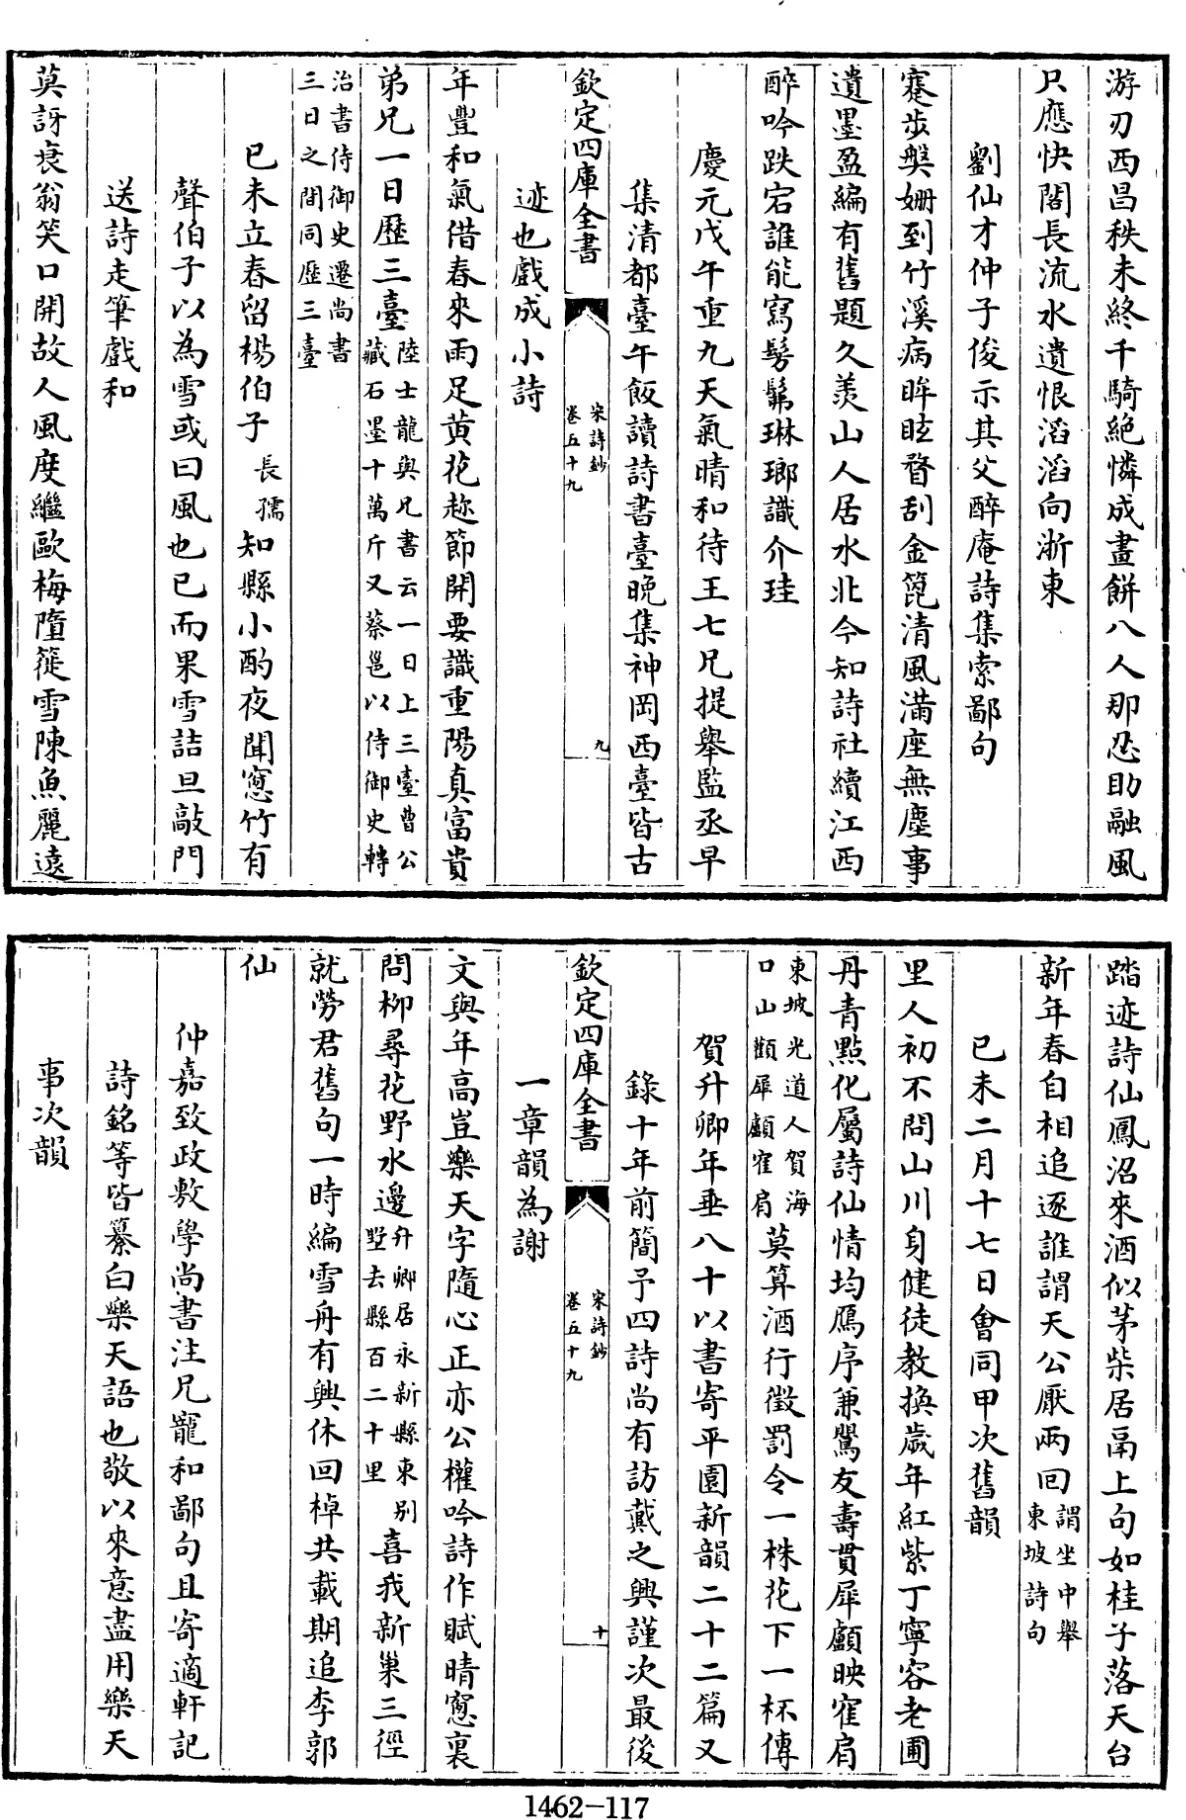 游刃西昌秩未終千騎絶憐成畫餅八人那忍助融風
只應快閣長流水遺恨滔滔向浙東
劉仙才仲子俊示其父醉庵詩集索鄙句
蹇步槃姍到竹溪病眸眩瞀刮金篦清風滿座無塵事
遺墨盈編有舊題久羨山人居水北今知詩社續江西
醉吟跌宕誰能寫髣髴琳瑯識介珪
慶元戊午重九天氣晴和待王七兄提舉監丞早
集清都臺午飯讀詩書臺晚集神岡西臺皆古
欽定四庫全書
宋詩鈔
卷五十九
九
迹也戲成小詩
年豐和氣借春來雨足黄花趂節開要識重陽真富貴
弟兄一日歷三臺陸士龍與兄書云一日上三臺曹公藏石墨十萬斤又蔡邕以侍御史轉
治書侍御史遷尚書三日之間同歷三臺
已未立春留楊伯子長孺知縣小酌夜聞窻竹有
聲伯子以為雪或曰風也已而果雪詰旦敲門
送詩走筆戲和
莫訝衰翁笑口開故人風度繼歐梅隨篵雪陳魚麗遠
踏迹詩仙鳳沼來酒似茅柴居鬲上句如桂子落天台
新年春自相追逐誰謂天公厭兩回謂坐中舉東坡詩句
已未二月十七日會同甲次舊韻
里人初不問山川身健徒教換歳年紅紫丁寧容老圃
丹青點化屬詩仙情均鴈序兼鶚友壽貫犀顱映寉肩
東坡光道人賀海口山顴犀顱寉肩莫算酒行徵罰令一株花下一杯傳
賀升卿年垂八十以書寄平園新韻二十二篇又
錄十年前簡予四詩尚有訪戴之興謹次最後
欽定四庫全書
宋詩鈔
卷五十九
十
一章韻為謝
文與年高豈樂天字隨心正亦公權吟詩作賦晴窻裏
問柳尋花野水邊升卿居永新縣東别墅去縣百二十里喜我新巢三徑
就勞君舊句一時編雪舟有興休回棹共載期追李郭
仙
仲嘉致政敷學尚書注兄寵和鄙句且寄適軒記
詩銘等皆纂白樂天語也敬以來意盡用樂天
事次韻
1462-117